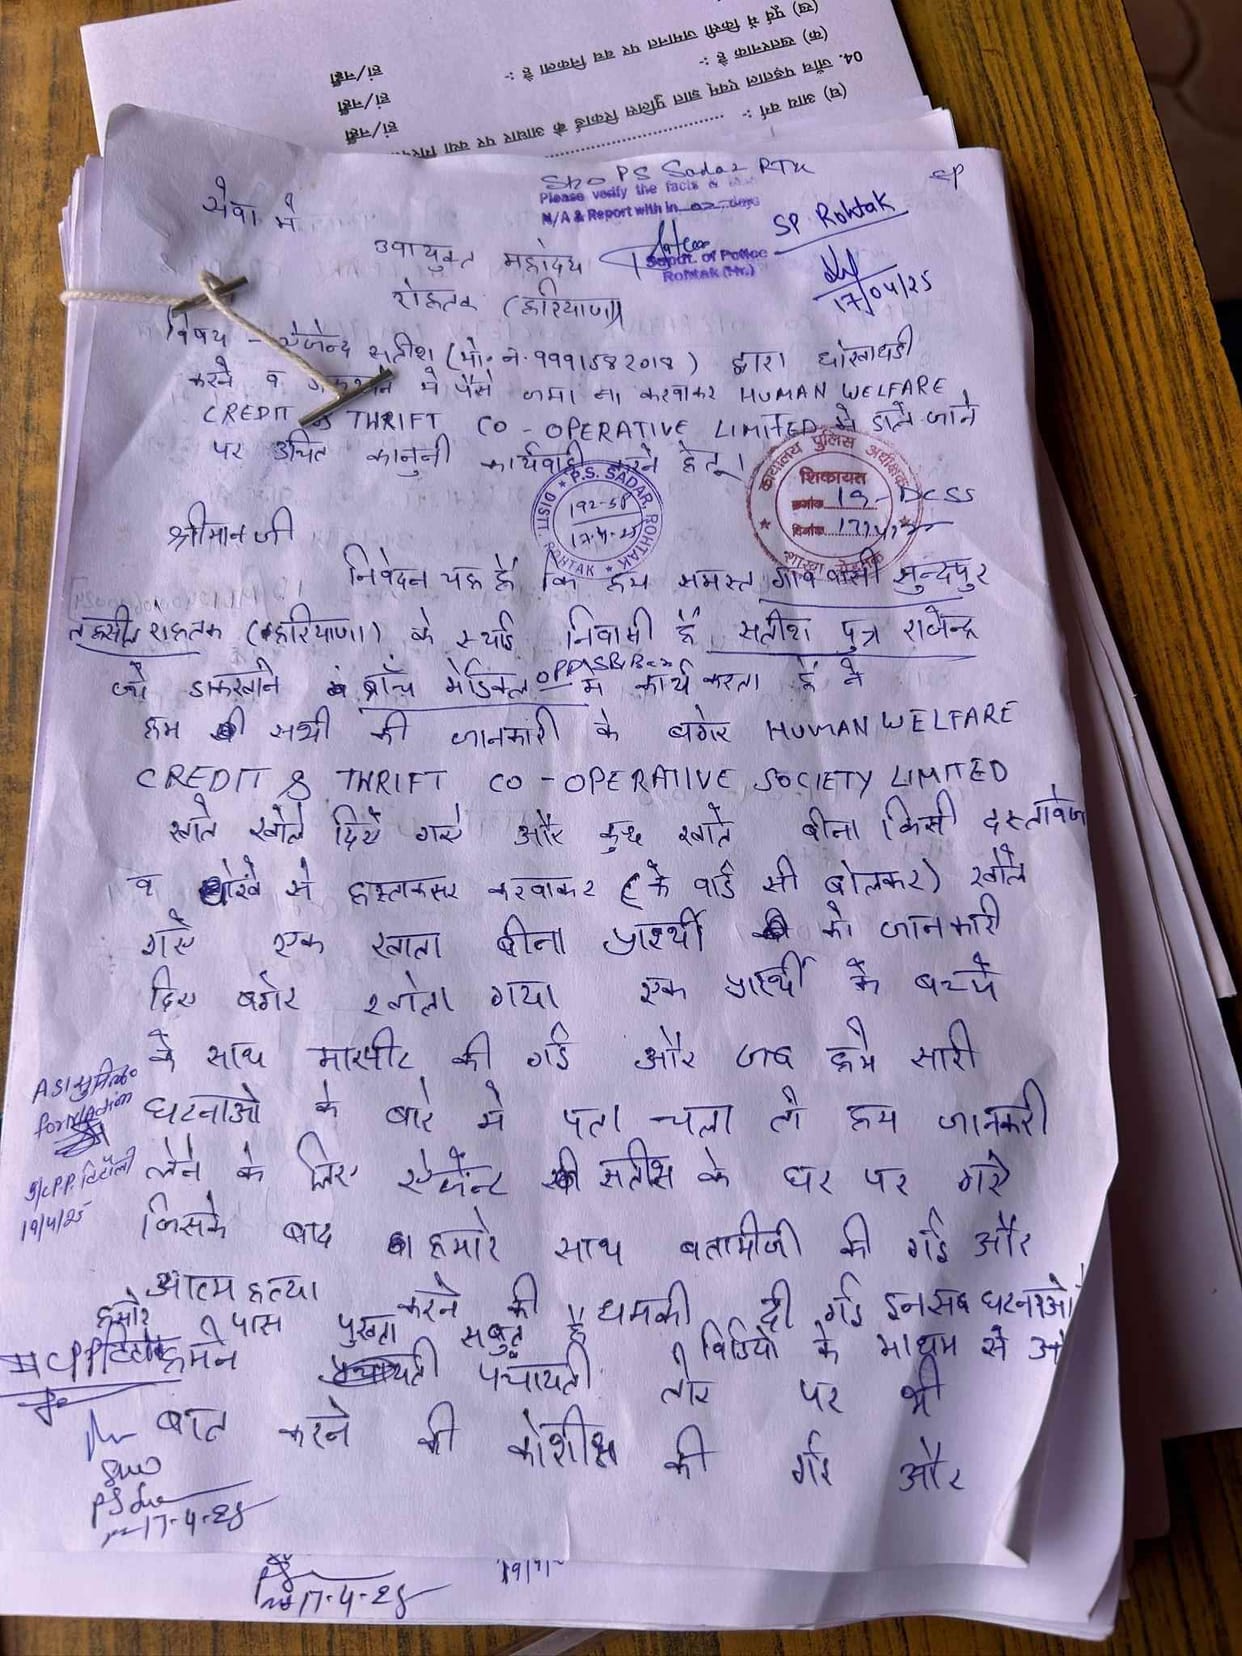 (ख) पूर्व में किसी जमानत पर बच निकला है :- हां/नहीं
(क) खतरनाक है :- हां/नहीं
04. जाँच पड़ताल एवम् ज्ञात पुलिस रिकार्ड के आधार पर क्या हां/नहीं
(घ) आय वर्ग :-
सेवा में
SHO PS Sadar RTK
Please verify the facts &
N/A & Report with in 02 days
SP
SP Rohtak
17/04/25
Supdt. of Police
Rohtak (Hr.)
उपायुक्त महोदय
रोहतक (हरियाणा)
विषय - ऐजेन्ट सतीश (मो॰ न. 9991582018) द्वारा धोखाधडी
करने व में पैसे जमा ना करवाकर HUMAN WELFARE
CREDIT & THRIFT CO-OPERATIVE LIMITED में डाले जाने
पर उचित कानुनी कार्यवाही करने हेतू।
DISTT. ROHTAK ★ P.S. SADAR, ROHTAK ★
192-5P
17-4-25
कार्यालय पुलिस अधीक्षक
शिकायत
क्रमांक 19-DCSS
दिनांक
शाखा रोहतक
श्रीमान जी
निवेदन यह है कि हम समस्त गांव वासी सुन्दपुर
तहसील रोहतक (हरियाणा) के स्थाई निवासी हैं सतीश पुत्र राजेन्द्र
जो डाकखाने ब्राँच मेडिकल में कार्य करता है ने
हम सभी की जानकारी के बगेर HUMAN WELFARE
CREDIT & THRIFT CO-OPERATIVE SOCIETY LIMITED
खाते खोले दिये गऐ और कुछ खाते बीना किसी दस्तावेज
व धोखे से हस्ताक्सर करवाकर (के वाई सी बोलकर) खोले
गऐ एक खाता बीना प्रार्थी को जानकारी
दिए बगेर खोला गया एक प्रार्थी के बच्चे
के साथ मारपीट की गई और जब हमे सारी
घटनाओ के बारे मे पता चला तो हम जानकरी
लेने के लिए ऐजेंन्ट सतीस के घर पर गऐ
जिसके बाद हमारे साथ बतामीजी की गई और
आत्म हत्या करने की धमकी दी गई इन सब घटनाओ
हमारे पास पुख्ता सबुत है विडियो के माध्यम से
हमने पंचायती तौर पर भी
बात करने की कोशीश की गई और
ASI
for N/Action
I/c P.P.
19/4/25
SHO
17-4-25
17-4-25